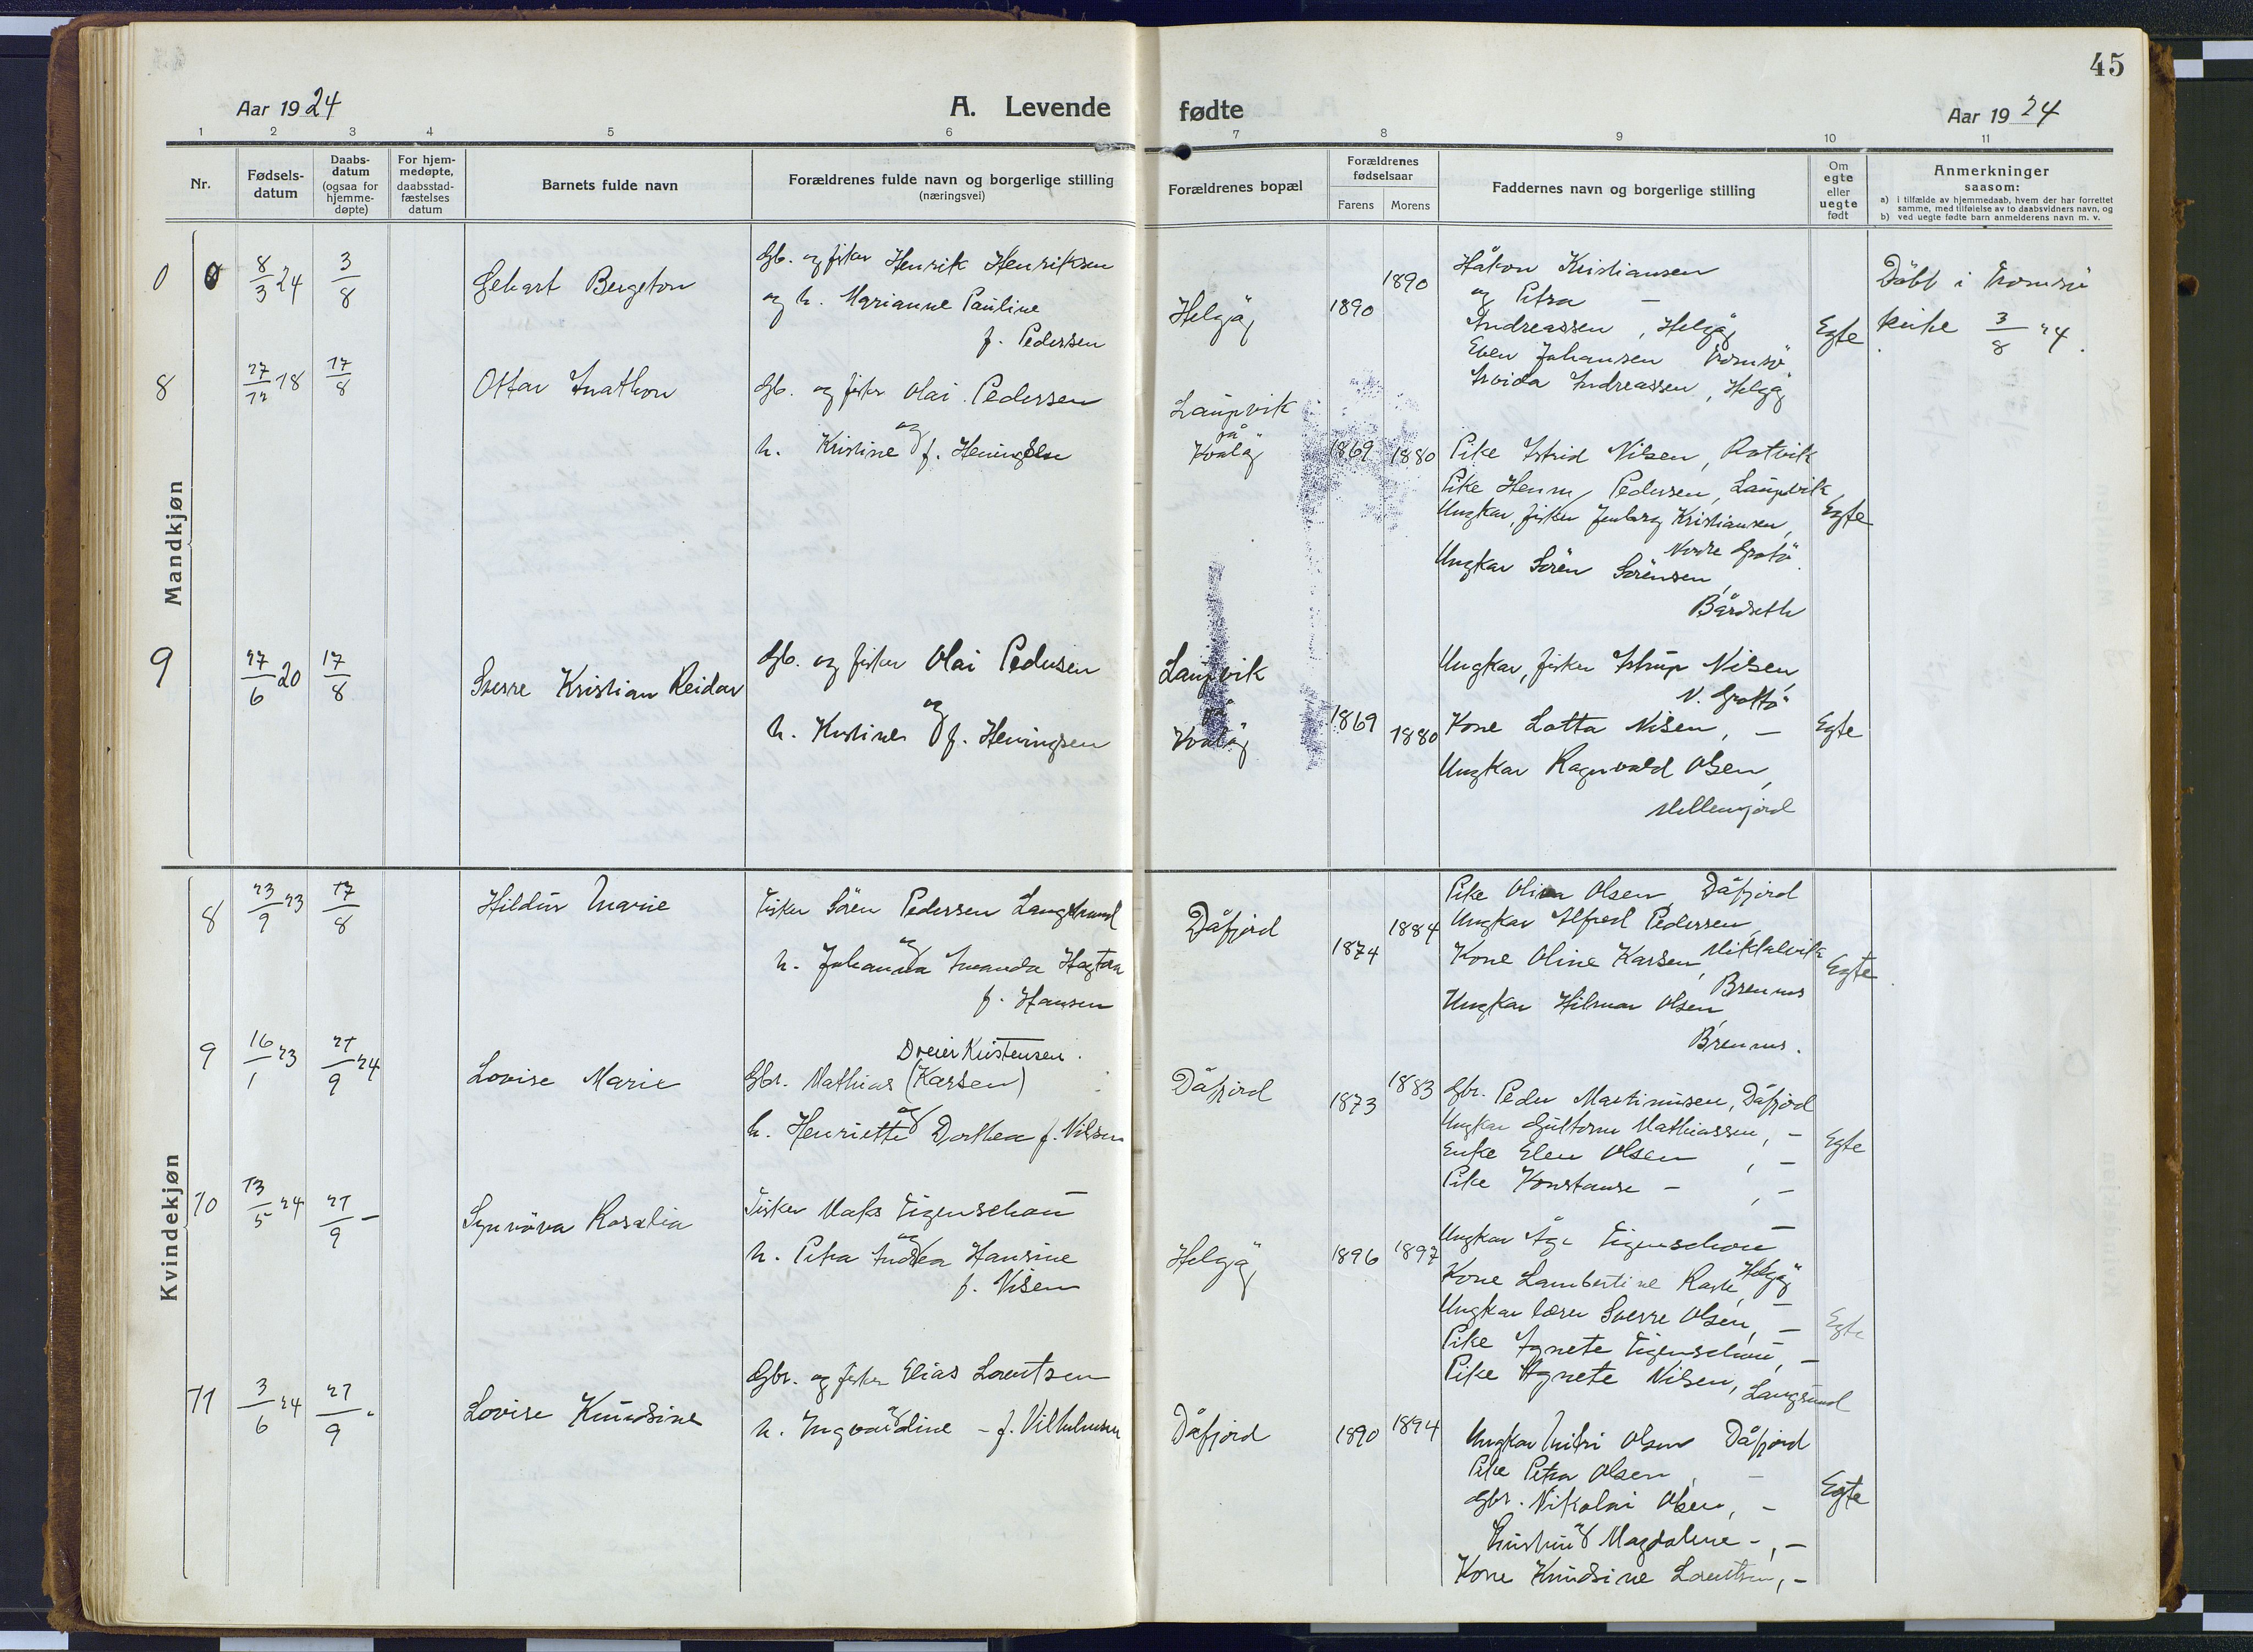 45
Aar 1924
A. Levende
fødte
Aar 1924
1 2 3 4 5 6 7 8 9 10 11
Nr.
Fødsels-
datum
Daabs-
datum
(ogsaa for
hjemme-
døpte)
For hjem-
medøpte,
daabsstad-
fæstelses
datum
Barnets fulde navn
Forældrenes fulde navn og borgerlige stilling
(næringsvei)
Forældrenes bopæl
Forældrenes
fødselsaar
Farens Morens
Faddernes navn og borgerlige stilling
Om
egte
eller
uegte
født
Anmerkninger
saasom:
a) i tilfælde av hjemmedaab, hvem der har forrettet
samme, med tilføielse av to daabsvidners navn, og
b) ved uegte fødte barn anmelderens navn m. v.
Mandkjøn
0 8/3 24 3/8
Gehart Bergeton
Gb. og fisker Henrik Henriksen
og h. Marianne Pauline
f. Pedersen
Helgøy
1890 1890
Håkon Kristiansen
og Petra —
Andreassen, Helgøy
Johansen Tromsø
Andreassen, Helgøy
Egte
Döbt i Tromsø
kirke 3/8 24.
8 27/12 18 17/8
Ottar
Gb. og fisker Olai Pedersen
og
h. Kristine f. Heningsen
Laupvik
på
Kvaløy
1869 1880
Pike Astrid Nilsen, Rotvik
Pike Henny Pedersen, Laupvik
Ungkar, fisker Kristiansen,
Nordre Grotö.
Ungkar Sören Sörensen,
Bårdseth
Egte
9 27/6 20 17/8
Sverre Kristian Reidar
Gb. og fisker Olai Pedersen
og
h. Kristine f. Heningsen
Laupvik
på
Kvaløy
1869 1880
Ungkar, fisker Nilsen,
N. Grottö
Kone Lotta Nilsen, —
Ungkar Ragnvald Olsen,
Mellemjord
Egte
Kvindekjøn
8 23/9 23 17/8
Hildur Marie
Fisker Sören Pedersen Langstrand
og
h. Johanna Amanda
f. Hansen
Dåfjord
1874 1884
Pike Olina Olsen, Dåfjord
Ungkar Alfred Pedersen,
Mikkelvik
Kone Oline Karsen,
Ungkar Hilmar Olsen,
Egte
9 16/1 23 21/9 24
Lovise Marie
Dreier Kristensen.
Gbr. Mathias (Karsen)
og
h. Henriette Dorthea f. Nilsen
Dåfjord
1873 1883
Gbr. Peder Martinusen, Dåfjord
Ungkar Guttorm Mathiassen, —
Enke Elen Olsen, —
Pike Konstanse — , —
Egte
10 13/5 24 21/9 —
Synnöva Rosalia
Fisker Maks Figenschou
og
h. Petra Andrea Hansine
f. Nilsen
Helgøy
1896 1897
Ungkar Åge Figenschou
Helgøy
Kone Lambertine Rask, —
Ungkar lærer Sverre Olsen, —
Pike Agnete Figenschou, —
Pike Agnete Nilsen, Langsund
Egte
11 3/6 24 21/9
Lovise Knudsine
Gbr. og fisker Elias Lorentsen
og
h. Ingvardine — f. Vilhelmsen
Dåfjord
1890 1894
Ungkar Olsen Dåfjord
Pike Petra Olsen, —
Gbr. Nikolai Olsen, —
Magdalene — , —
Kone Knudsine Lorentsen, —
Egte